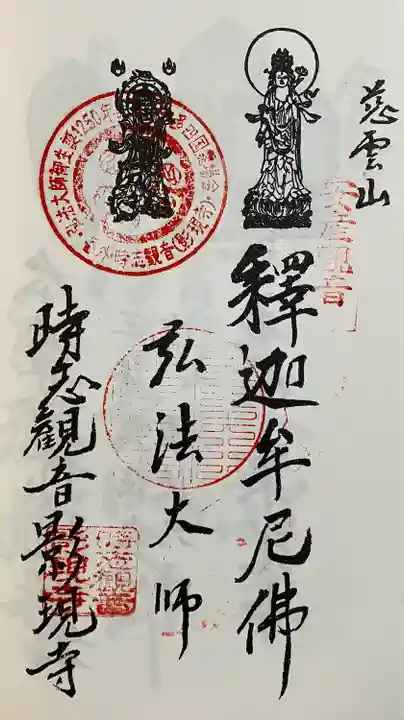 慈雲山
安産観音
釋迦牟尼佛
弘法大師
弘法大師御生誕1250年
時志観音(影現寺)
時志觀音影現寺